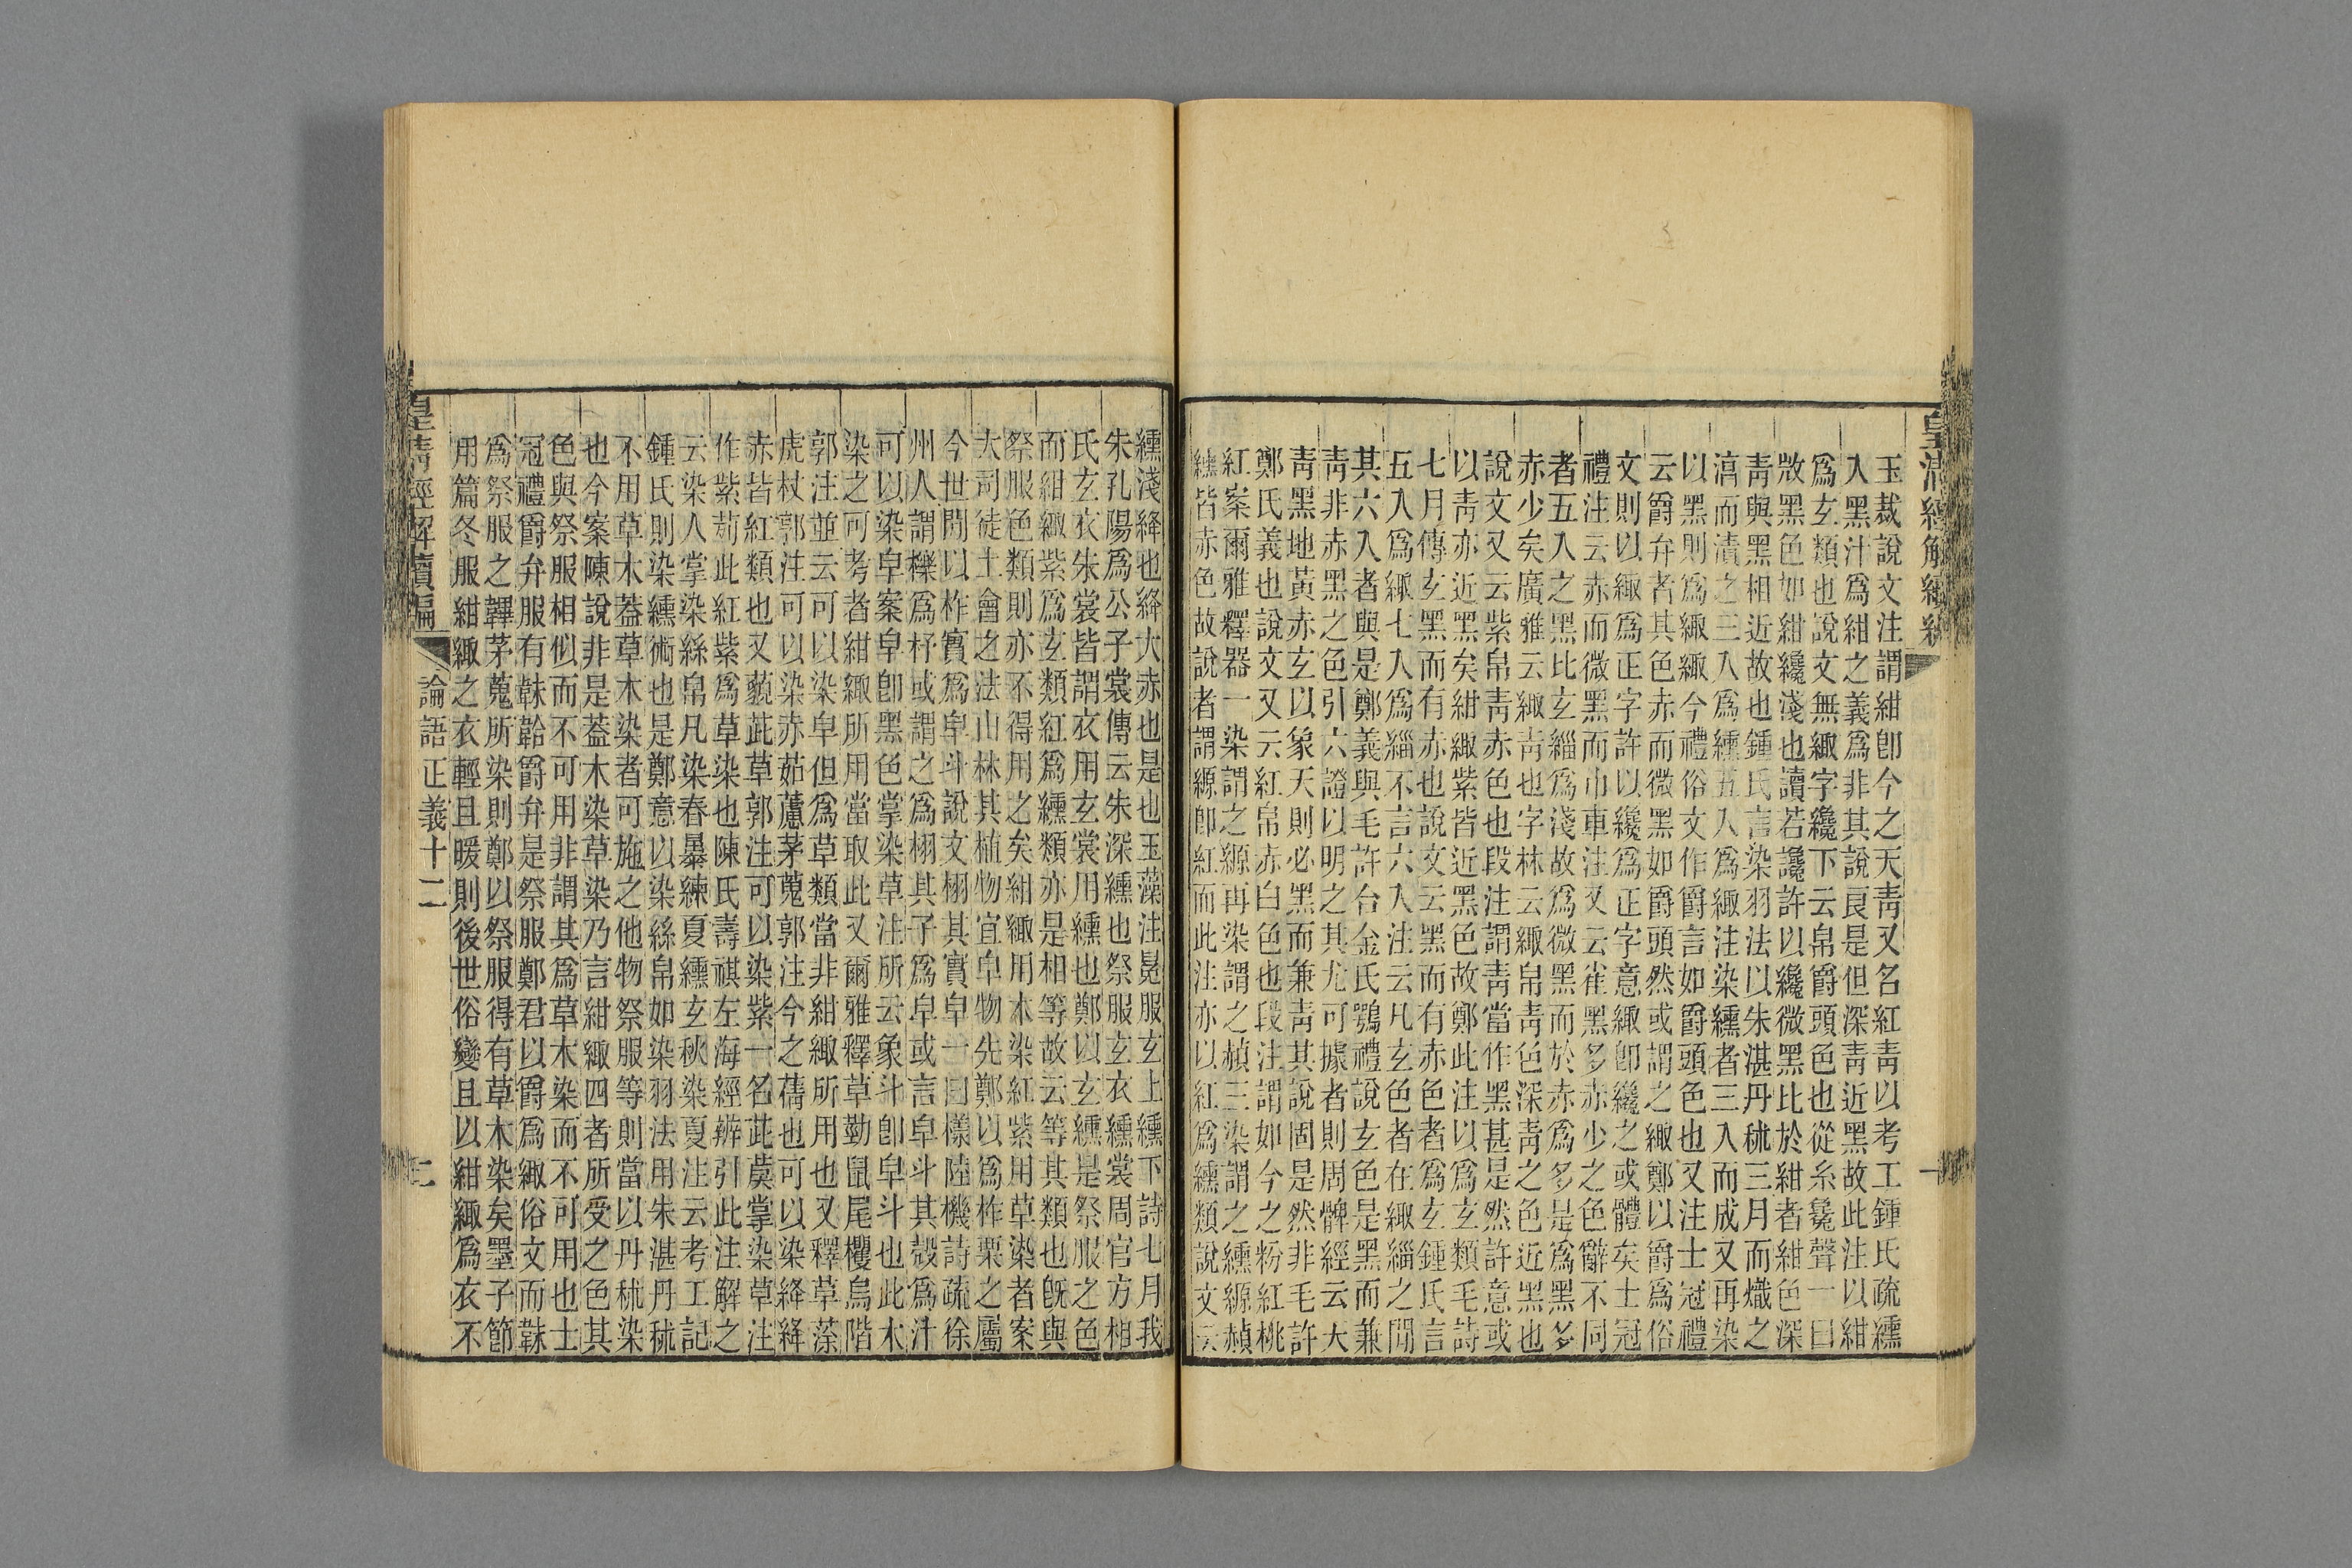 皇清經解續編
玉裁說文注謂紺卽今之天靑又名紅靑以考工鍾氏疏纁
入黑汁爲紺之義爲非其說良是但深靑近黑故此注以紺
爲玄類也說文無緅字纔下云帛爵頭色也從糸毚聲一曰
㣲黑色如紺纔淺也讀若讒許以纔微黑比於紺者紺色深
靑與黑相近故也鍾氏言染羽法以朱湛丹秫三月而熾之
淳而漬之三入爲纁五入爲緅注染纁者三入而成又再染
以黑則爲緅緅今禮俗文作爵言如爵頭色也又注士冠禮
云爵弁者其色赤而微黑如爵頭然或謂之緅鄭以爵爲俗
文則以緅爲正字許以纔爲正字意緅卽纔之或體矣士冠
禮注云赤而微黑而巾車注又云雀黑多赤少之色辭不同
者五入之黑比玄緇爲淺故爲微黑而於赤爲多是爲黑多
赤少矣廣雅云緅靑也字林云緅帛靑色深靑之色近黑也
說文又云紫帛靑赤色也段注謂靑當作黑甚是然許意或
以靑亦近黑矣紺緅紫皆近黑色故鄭此注以爲玄類毛詩
七月傳玄黑而有赤也說文云黑而有赤色者爲玄鍾氏言
五入爲緅七入爲緇不言六入注云凡玄色者在緅緇之閒
其六入者與是鄭義與毛許合金氏鶚禮說玄色是黑而兼
靑非赤黑之色引六證以明之其尤可據者則周髀經云天
靑黑地黃赤玄以象天則必黑而兼靑其說固是然非毛許
鄭氏義也說文又云紅帛赤白色也段注謂如今之粉紅桃
紅案爾雅釋器一染謂之縓再染謂之赬三染謂之纁縓赬
纁皆赤色故說者謂縓卽紅而此注亦以紅爲纁類說文云
纁淺絳也絳大赤也是也玉藻注冕服玄上纁下詩七月我
朱孔陽爲公子裳傳云朱深纁也祭服玄衣纁裳周官方相
氏玄衣朱裳皆謂衣用玄裳用纁也鄭以玄纁是祭服之色
而紺緅紫爲玄類紅爲纁類亦是相等故云等其類也旣與
祭服色類則亦不得用之矣紺緅用木染紅紫用草染者案
大司徒土會之法山林其植物宜皁物先鄭以爲柞栗之屬
今世閒以柞實爲皁斗說文栩其實皁一曰樣陸機詩疏徐
州人謂櫟爲杼或謂之爲栩其子爲皁或言皁斗其殼爲汁
可以染皁案皁卽黑色掌染草注所云象斗卽皁斗也此木
染之可考者紺緅所用當取此又爾雅釋草勤鼠尾欔烏階
郭注並云可以染皁但爲草類當非紺緅所用也又釋草蒤
虎杖郭注可以染赤茹藘茅蒐郭注今之蒨也可以染絳絳
赤皆紅類也又藐茈草郭注可以染紫一名茈䓞掌染草注
作紫茢此紅紫爲草染也陳氏壽祺左海經辨引此注解之
云染人掌染絲帛凡染春暴練夏纁玄秋染夏注云考工記
鍾氏則染纁術也是鄭意以染絲帛如染羽法用朱湛丹秫
不用草木葢草木染者可施之他物祭服等則當以丹秫染
也今案陳說非是葢木染草染乃言紺緅四者所受之色其
色與祭服相似而不可用非謂其爲草木染而不可用也士
冠禮爵弁服有韎韐爵弁是祭服鄭君以爵爲緅俗文而韎
爲祭服之韠茅蒐所染則鄭以祭服得有草木染矣墨子節
用篇冬服紺緅之衣輕且暖則後世俗變且以紺緅爲衣不
皇清經解續編 論語正義十二 二